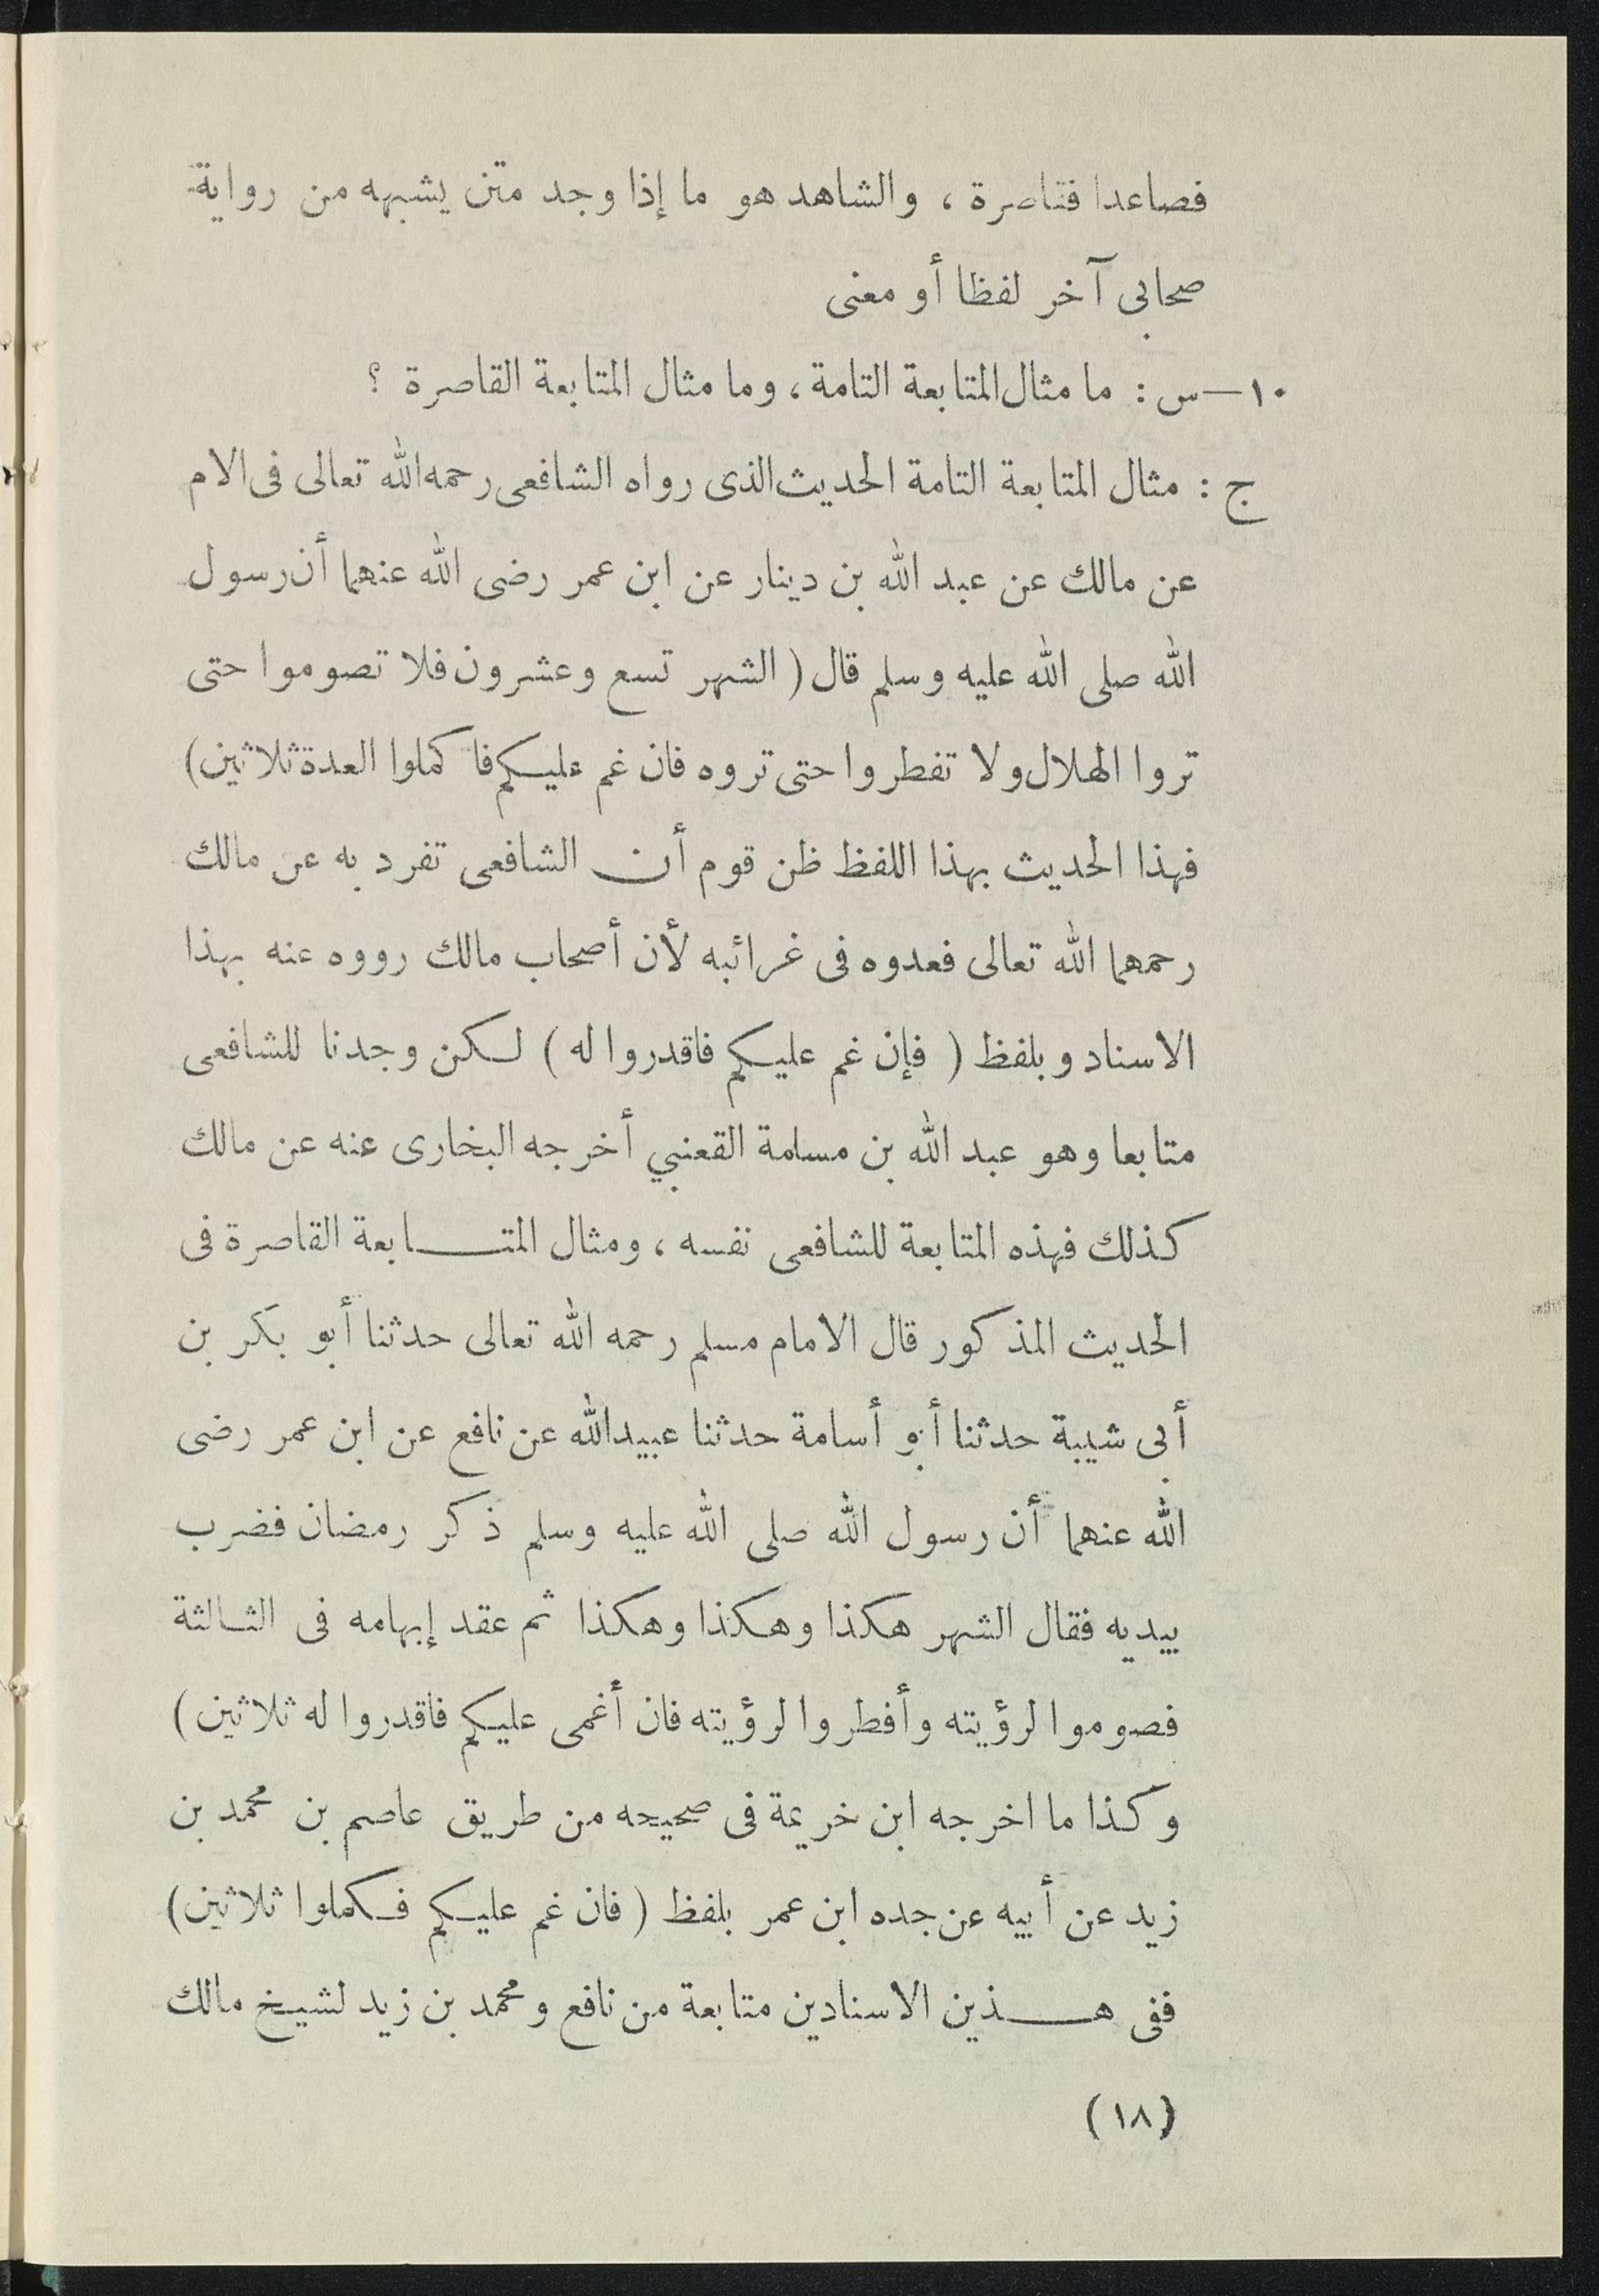 فصاعدا فقاصرة ، والشاهد هو ما إذا وجد متن يشبهه من رواية
صحابى آخر لفظا أو معنى
١٠—س : ما مثال المتابعة التامة ، وما مثال المتابعة القاصرة ؟
ج : مثال المتابعة التامة الحديث الذى رواه الشافعى رحمه الله تعالى فى الام
عن مالك عن عبد الله بن دينار عن ابن عمر رضى الله عنهما أن رسول
الله صلى الله عليه وسلم قال ( الشهر تسع وعشرون فلا تصوموا حتى
تروا الهلال ولا تفطروا حتى تروه فان غم عليكم فا كملوا العدة ثلاثين )
فهذا الحديث بهذا اللفظ ظن قوم أن الشافعى تفرد به عن مالك
رحمهما الله تعالى فعدوه فى غرائبه لأن أصحاب مالك رووه عنه بهذا
الاسناد وبلفظ ( فإن غم عليكم فاقدروا له ) لكن وجدنا للشافعى
متابعا وهو عبد الله بن مسلمة القعنبي أخرجه البخارى عنه عن مالك
كذلك فهذه المتابعة للشافعى نفسه ، ومثال المتابعة القاصرة فى
الحديث المذكور قال الامام مسلم رحمه الله تعالى حدثنا أبو بكر بن
أبى شيبة حدثنا أبو أسامة حدثنا عبيدالله عن نافع عن ابن عمر رضى
الله عنهما أن رسول الله صلى الله عليه وسلم ذكر رمضان فضرب
بيديه فقال الشهر هكذا وهكذا وهكذا ثم عقد إبهامه فى الثالثة
فصوموا لرؤيته وأفطروا لرؤيته فان أغمى عليكم فاقدروا له ثلاثين )
وكذا ما اخرجه ابن خريمة فى صحيحه من طريق عاصم بن محمد بن
زيد عن أبيه عن جده ابن عمر بلفظ ( فان غم عليكم فكملوا ثلاثين )
ففى هذين الاسنادين متابعة من نافع ومحمد بن زيد لشيخ مالك
( ١٨ )